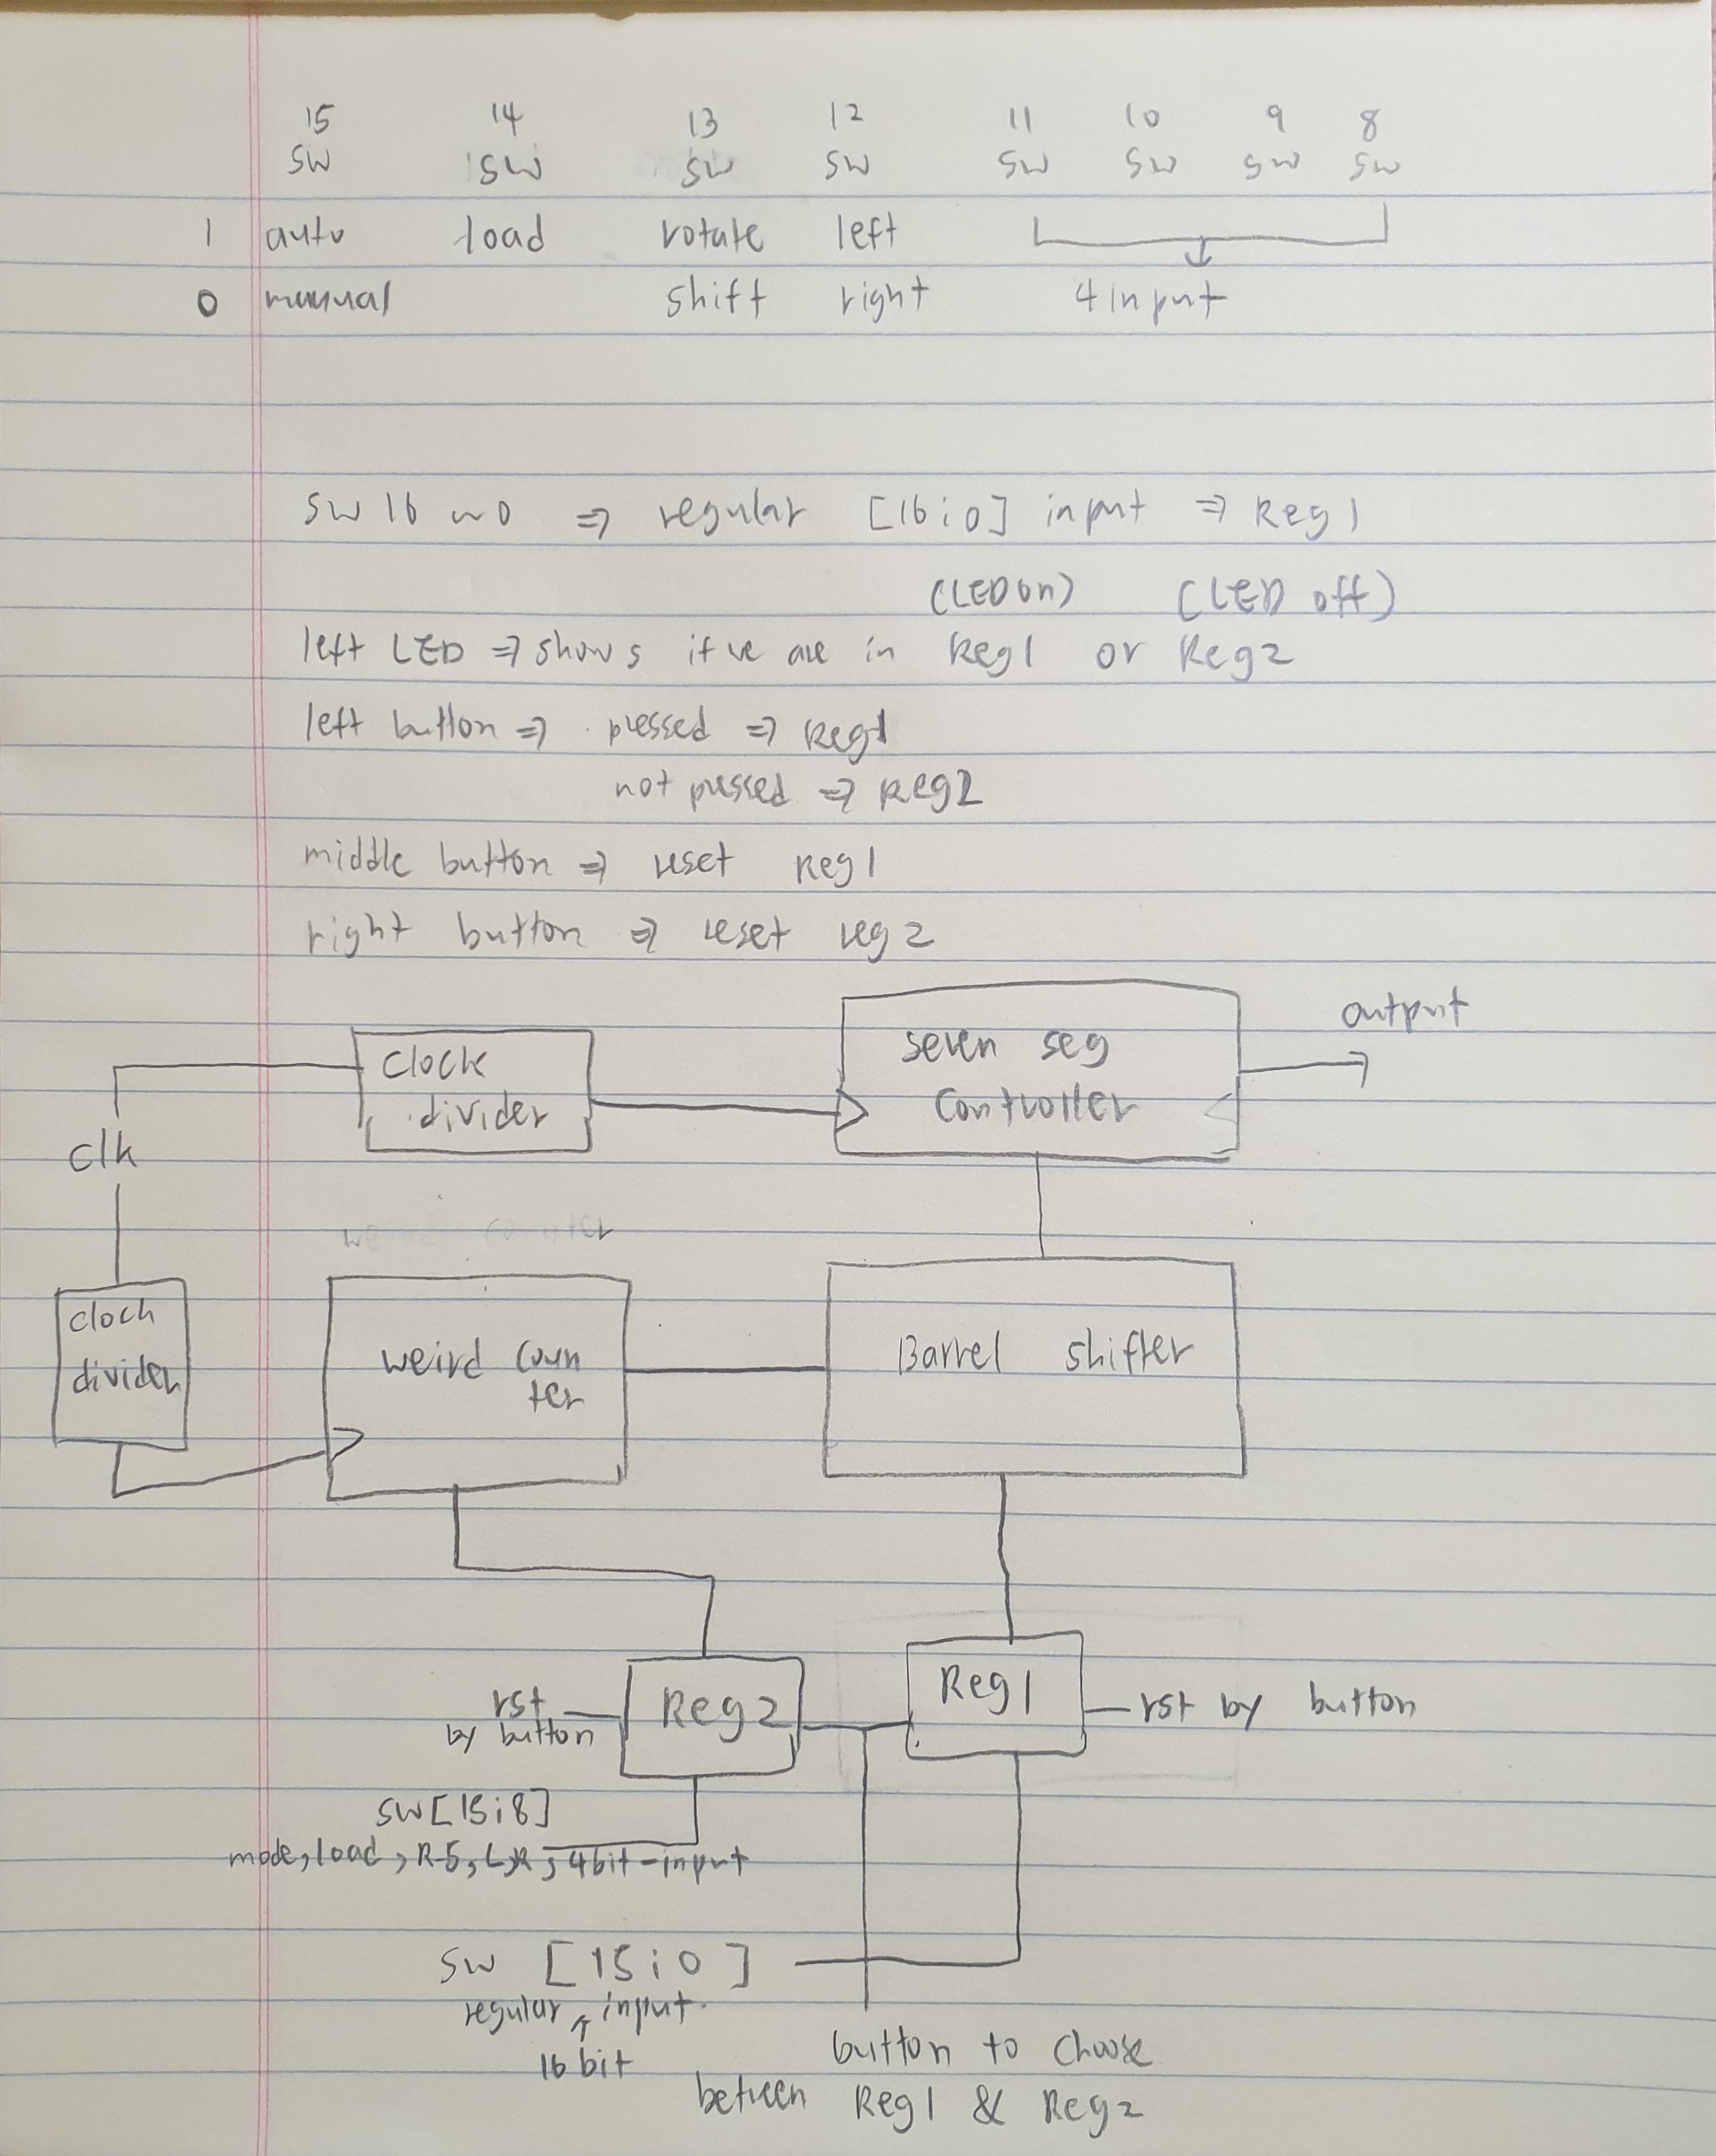 15 14 13 12 11 10 9 8
SW SW SW SW SW SW SW SW
1 auto load rotate left
0 manual shift right 4 input
SW 16 ~ 0 => regular [16:0] input => Reg1
(LED on) (LED off)
left LED => shows if we are in Reg1 or Reg2
left button => pressed => Reg1
not pressed => Reg2
middle button => reset Reg1
right button => reset reg2
output
clock
divider
seven seg
controller
clk
counter
clock
divider
weird coun
ter
Barrel shifter
rst
by button
Reg2
Reg1
rst by button
SW[15:8]
mode, load, R-S, L,R, 4bit-input
SW [15:0]
regular input.
16 bit
button to choose
between Reg1 & Reg2